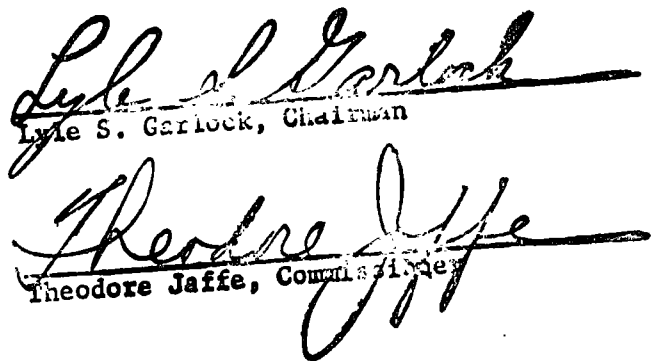 Lyle S Garlock
Lyle S. Garlock, Chairman
Theodore Jaffe
Theodore Jaffe, Commissioner